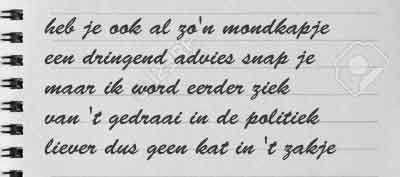 heb je ook al zo'n mondkapje
een dringend advies snap je
maar ik word eerder ziek
van 't gedraai in de politiek
liever dus geen kat in 't zakje